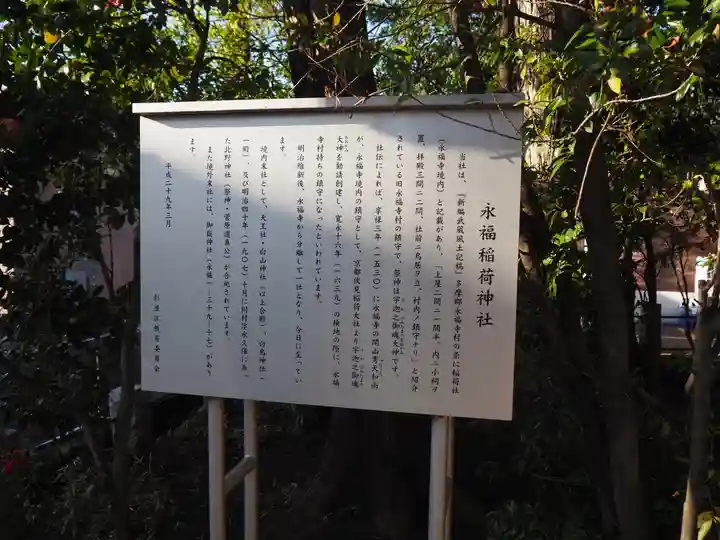 永福稲荷神社
当社は、『新編武蔵風土記稿』多摩郡永福寺村の条に稲荷社
(永福寺境内)と記載があり、「上屋二間ニ一間半、内ニ小祠ヲ
置、拝殿三間ニ二間、社前ニ鳥居ヲ立、村内ノ鎮守ナリ」と紹介
されている旧永福寺村の鎮守で、祭神は宇迦之御魂大神です。
社伝によれば、享禄三年(一五三〇)に永福寺の開山秀天和尚
が、永福寺境内の鎮守として、京都伏見稲荷大社より宇迦之御魂
大神を勧請創建し、寛永十六年(一六三九)の検地の際に、永福
寺村持ちの鎮守になったといわれています。
明治維新後、永福寺から分離して一社となり、今日に至ってい
ます。
境内末社として、天王社・白山神社(以上合殿)、白鳥神社(
一殿)、及び明治四十年(一九〇七)十月に同村字永久保にあっ
た北野神社(祭神・菅原道真公)が合祀されています。
また境外末社には、御嶽神社(永福一―三十九―十七)があり
ます。
平成二十九年三月
杉並区教育委員会